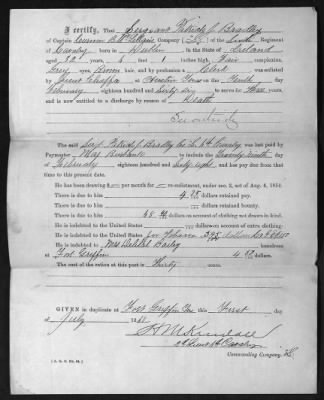 I certify, That Sergeant Patrick J. Bradley
of Captain Company (L) of the Sixth Regiment
of Cavalry born in Dublin in the State of Ireland
aged 32 years 5 feet 1 inches high, Fair complexion,
Grey eyes, Brown hair, and by profession a Clerk was enlisted
by at Texas on the Tenth
February eighteen hundred and Sixty to serve Three years,
and is now entitled to a discharge by reason of Death
The said Serg't Patrick J. Bradley Co. L. 6th Cavalry was last paid by
Paymaster Maj to include the Twenty ninth day of
February eighteen hundred and Sixty eight and has pay due from that
time to the present date.
He has been drawing $ per month for re-enlistment, under sec. 2, act of Aug. 4, 1854.
There is due to him 4 dollars retained pay.
There is due to him dollars
There is due to him 68 dollars on account of clothing not drawn in kind.
He is indebted to the United States dollars on account of extra clothing.
He is indebted to
He is indebted to Mrs Bailey laundress
at Fort Griffin 4 dollars.
The cost of the ration at this post is Thirty cents.
GIVEN in duplicate at Fort Griffin Tex this First day
of July 1868
H M Kendall
2d Lieut 6th Cavalry
Commanding Company L